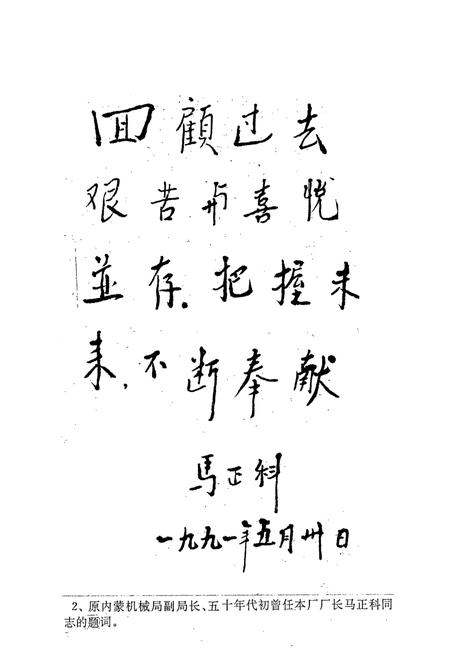 回顾过去
艰苦与喜悦
並存.把握未
来,不断奉献
马正科
一九九一年五月卅日
2、原内蒙机械局副局长、五十年代初曾任本厂厂长马正科同
志的题词。